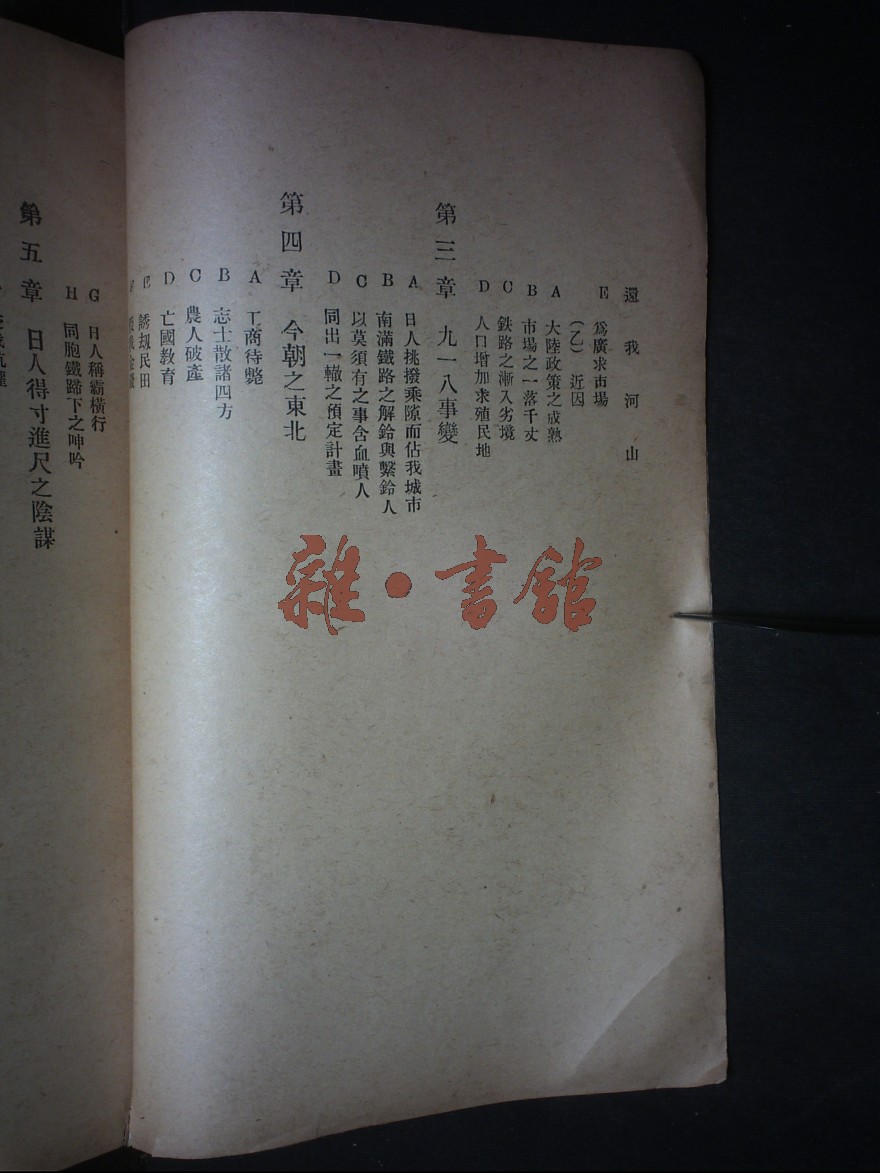 還我河山
E 爲廣求市場
（乙）近因
A 大陸政策之成熟
B 市場之一落千丈
C 鉄路之漸入劣境
D 人口增加求殖民地
第三章 九一八事變
A 日人挑撥乘隙而佔我城市
B 南滿鐵路之解鈴與繫鈴人
C 以莫須有之事含血噴人
D 同出一轍之預定計畫
第四章 今朝之東北
A 工商待斃
B 志士散諸四方
C 農人破產
D 亡國教育
E 誘刼民田
G 日人稱霸橫行
H 同胞鐵蹄下之呻吟
第五章 日人得寸進尺之陰謀
雜·書館